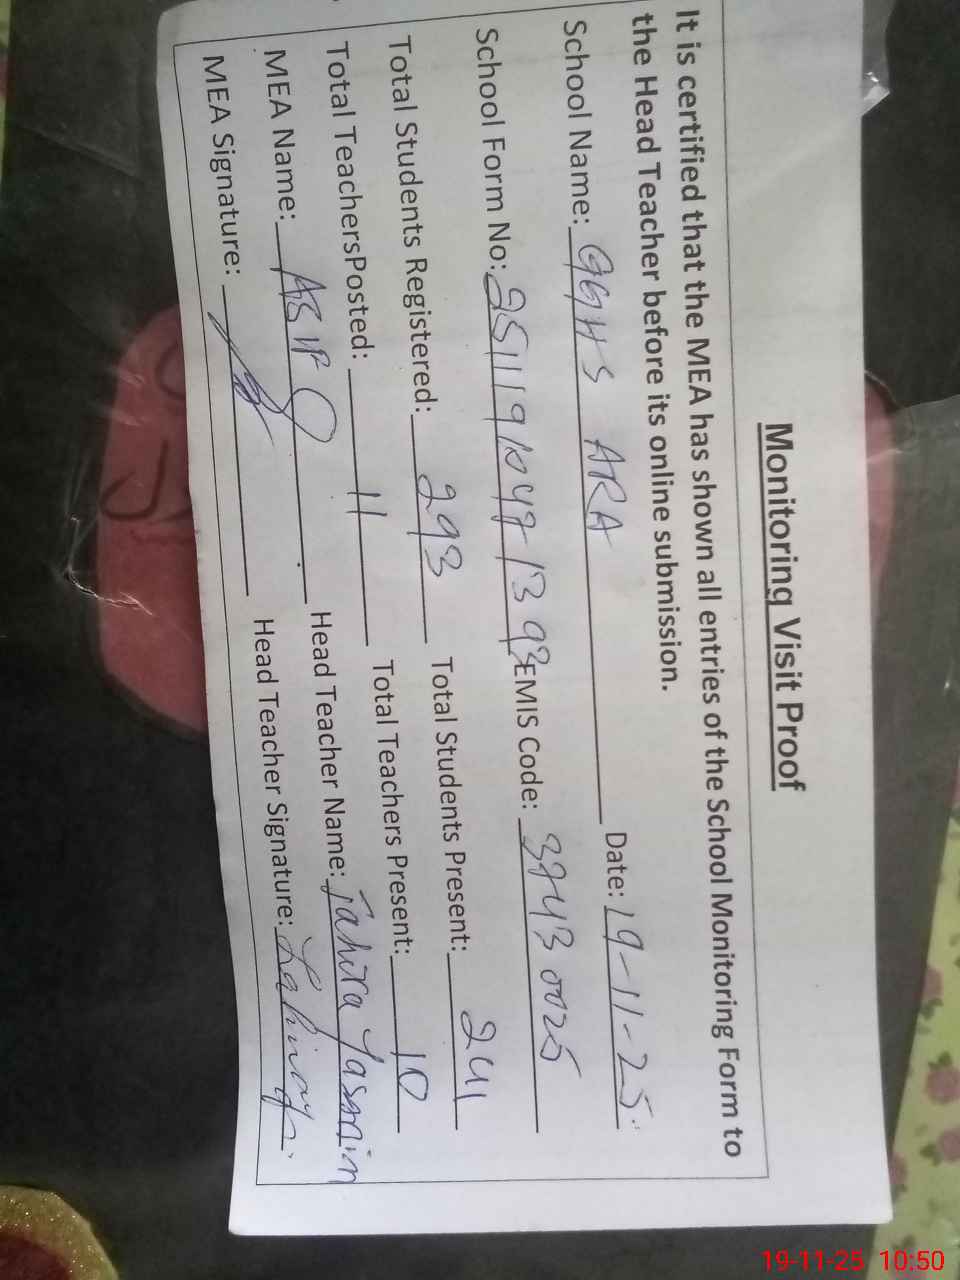 Monitoring Visit Proof
It is certified that the MEA has shown all entries of the School Monitoring Form to
the Head Teacher before its online submission.
School Name: GGHS ARA Date: 19-11-25
School Form No: EMIS Code:
Total Students Registered: 293 Total Students Present: 241
Total TeachersPosted: 11 Total Teachers Present: 10
MEA Name: Head Teacher Name: Tahira Yasmin
MEA Signature: Head Teacher Signature:
19-11-25 10:50